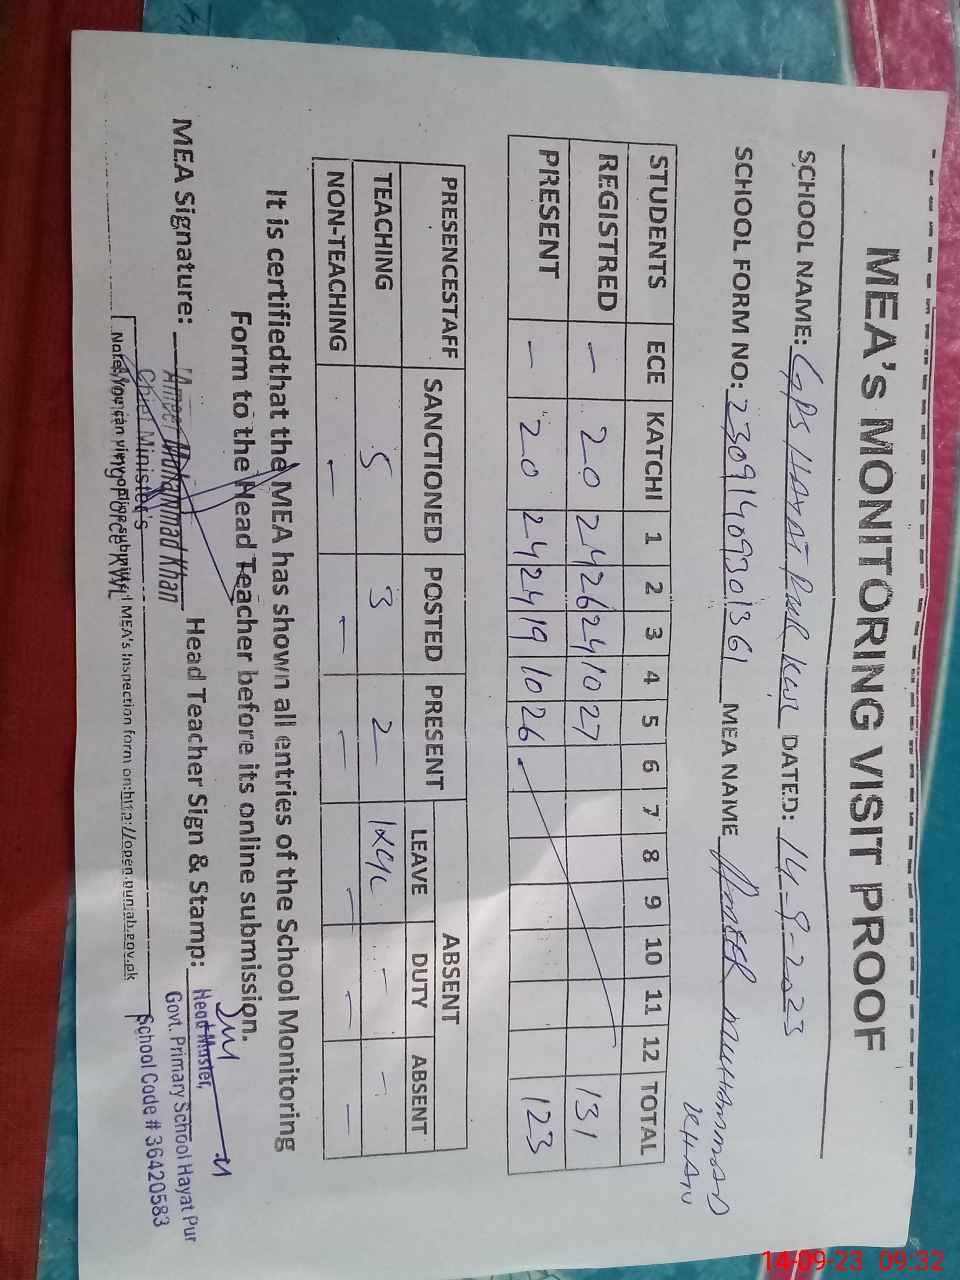 MEA's MONITORING VISIT PROOF
SCHOOL NAME: GPS HAYAT PUR KWL DATED: 14-9-2023
SCHOOL FORM NO: 23091409301361 MEA NAME AMEER MUHAMMAD KHAN
STUDENTS ECE KATCHI 1 2 3 4 5 6 7 8 9 10 11 12 TOTAL
REGISTRED - 20 24 26 24 10 27 131
PRESENT - 20 24 24 19 10 26 123
PRESENCESTAFF SANCTIONED POSTED PRESENT ABSENT
LEAVE DUTY ABSENT
TEACHING 5 3 2 - -
NON-TEACHING - - - - - -
It is certifiedthat the MEA has shown all entries of the School Monitoring
Form to the Head Teacher before its online submission.
MEA Signature: Ameer Muhammad Khan Head Teacher Sign & Stamp:
Chief Minister's
Head Master,
Govt. Primary School Hayat Pur
School Code # 36420583
Note: You can view online submitted MEA's Inspection form on:http://open.punjab.gov.pk
14-09-23 09:32